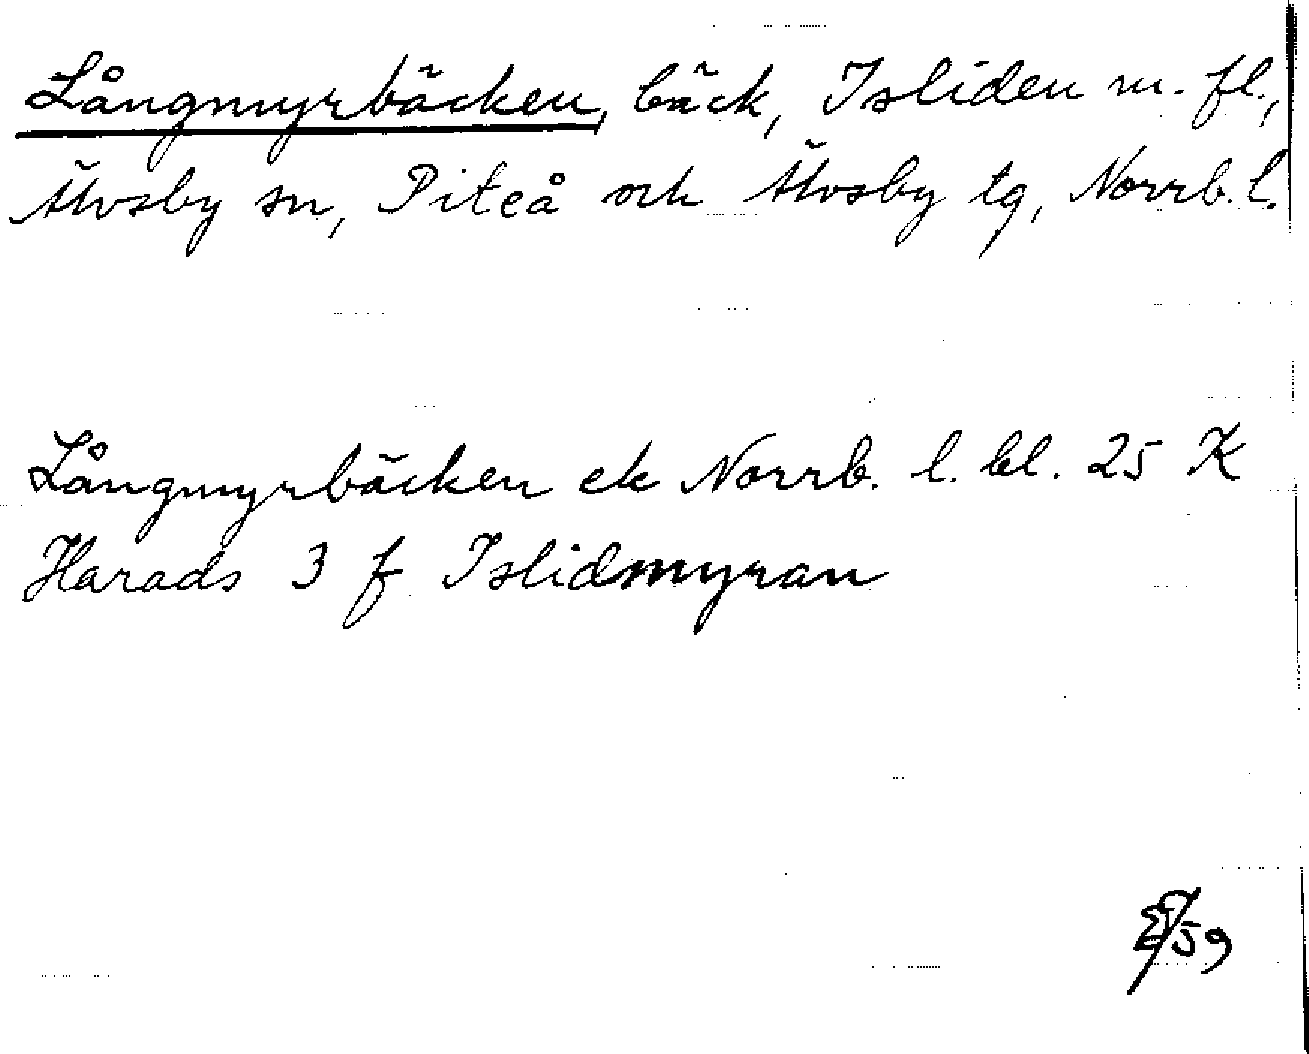 Långmyrbäcken, bäck, Isliden m. fl.,
Älvsby sn, Piteå och Älvsby tg, Norrb. l.
Långmyrbäcken ek Norrb. l. bl. 25 K
Harads 3 f Islidmyran
59